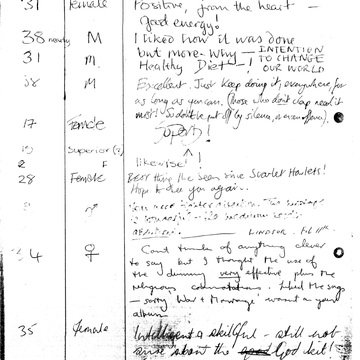 31 female Positive, from the heart –
good energy!
38 nearly M I liked how it was done
31 M. but more why – INTENTION
Healthy Diet – ! TO CHANGE
OUR WORLD
38 M Excellent. Just keep doing it, everywhere, for
as long as you can. (Those who don't clap need it
most! So don't be put off by silence, or even
17 Female Spotty!
19 Superior (?)
2 F likewise!
28 Female Best thing I've seen since Scarlet Harlets!
Hope to see you again.
34 ♀ Can't think of anything clever
to say but I thought the use of
the dummy very effective plus the
religious connotations. I liked the songs
– sorry War & Marriage wasn't on your
album.
35 female Intelligent & skillful – still not
sure about the God bit!